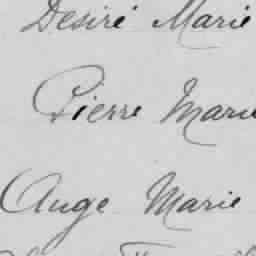 Desiré Marie
Pierre Marie
Auge Marie